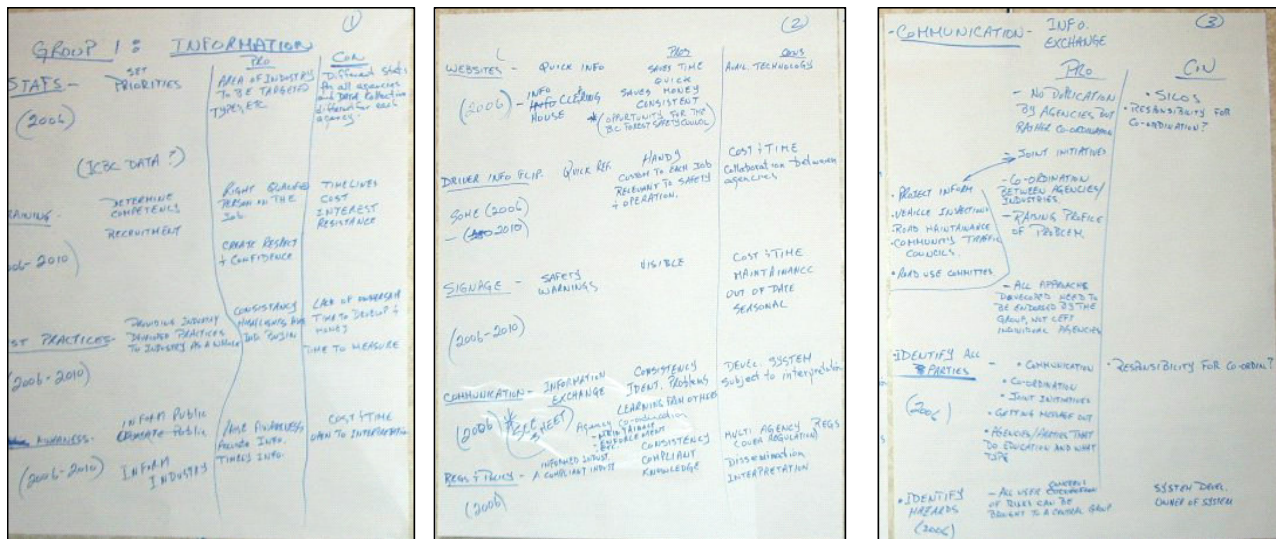 ①
GROUP 1: INFORMATION
PRO
CON
STATS - SET PRIORITIES
AREA OF INDUSTRY
TO BE TARGETED
TYPES, ETC
Different stats
for all agencies
and DATA collection
different for each
agency.
(2006)
(ICBC DATA?)
AINING -
DETERMINE
COMPETENCY
RECRUITMENT
RIGHT QUALIFIED
PERSON ON THE
Job.
CREATE RESPECT
+ CONFIDENCE
TIMELINES
COST
INTEREST
RESISTANCE
06-2010)
ST PRACTICES -
PROVIDING INDUSTRY
DEVELOPED PRACTICES
TO INDUSTRY AS A WHOLE
CONSISTANCY
HIGHLIGHTS
IND. BUY IN
LACK OF OWNERSHIP
TIME TO DEVELOP +
MONEY
TIME TO MEASURE
(2006-2010)
AWARNESS -
INFORM PUBLIC
PUBLIC
INFORM
INDUSTRY
RAISE AWARENESS
FOCUSED INFO.
TIMELY INFO.
COST & TIME
OPEN TO INTERPRETATION
(2006-2010)
②
PROS
CONS
WEBSITES - QUICK INFO
SAVES TIME
QUICK
SAVES MONEY
CONSISTENT
*(OPPORTUNITY FOR THE
B.C. FOREST SAFETY COUNCIL)
AVAIL. TECHNOLOGY
(2006)
- INFO
CLEARING
HOUSE
DRIVER INFO FLIP.
QUICK REF.
HANDY
CUSTOM TO EACH JOB
RELEVANT TO SAFETY
+ OPERATION.
COST & TIME
Collaboration between
agencies
SOME (2006)
- (2010)
SIGNAGE -
SAFETY
WARNINGS
VISIBLE
COST & TIME
MAINTAINANCE
OUT OF DATE
SEASONAL
(2006-2010)
COMMUNICATION -
INFORMATION
EXCHANGE
CONSISTENCY
IDENT. PROBLEMS
LEARNING FROM OTHERS
DEVEL. SYSTEM
Subject to interpretation
(2006)
* SEE
SHEET
Agency co-ordination
- MAINTAINANCE
- ENFORCEMENT
- ETC
REGS & POLICY -
INFORMED INDUST.
A COMPLIANT INDUST
CONSISTENCY
COMPLIANT
KNOWLEDGE
MULTI AGENCY REGS
(OVER REGULATION)
Dissemination
INTERPRETATION
(2006)
③
- COMMUNICATION - INFO.
EXCHANGE
PRO
CON
- NO DUPLICATION
BY AGENCIES BUT
RATHER CO-ORDINATION
• SILOS
• RESPONSIBILITY FOR
CO-ORDINATION?
- JOINT INITIATIVES
- CO-ORDINATION
BETWEEN AGENCIES/
INDUSTRIES.
- RAISING PROFILE
OF PROBLEM.
• PROJECT INFORM
• VEHICLE INSPECTIONS
• ROAD MAINTAINANCE
• COMMUNITY TRAFFIC
COUNCILS.
• ROAD USE COMMITTEES
- ALL APPROACHES
DEVELOPED NEED TO
BE ENDORSED BY THE
GROUP, NOT LEFT
INDIVIDUAL AGENCIES
• IDENTIFY ALL
PARTIES
(2006)
- • COMMUNICATION
• CO-ORDINATION
• JOINT INITIATIVES
• GETTING MESSAGE OUT
• AGENCIES/PARTIES THAT
DO EDUCATION AND WHAT
TYPE
• RESPONSIBILITY FOR CO-ORDIN.?
• IDENTIFY
HAZARDS
(2006)
- ALL USER CONCERNS
OF RISKS CAN BE
BROUGHT TO A CENTRAL GROUP
SYSTEM DEVEL.
OWNER OF SYSTEM